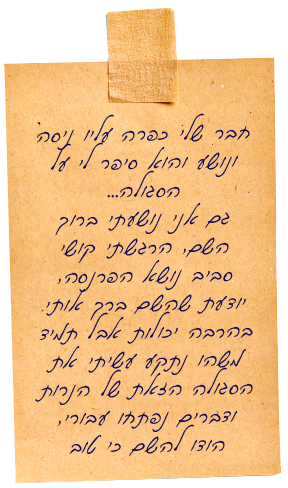 חבר שלי כפרה עליו ניסה
ונושע והוא סיפר לי על
הסגולה...
גם אני נושעתי ברוך
השם, הרגשתי קושי
סביב נושא הפרנסה,
יודעת שהשם ברך אותי
בהרבה יכולות אבל תמיד
משהו נתקע עשיתי את
הסגולה הזאת של הנרות
ודברים נפתחו עבורי,
הודו להשם כי טוב